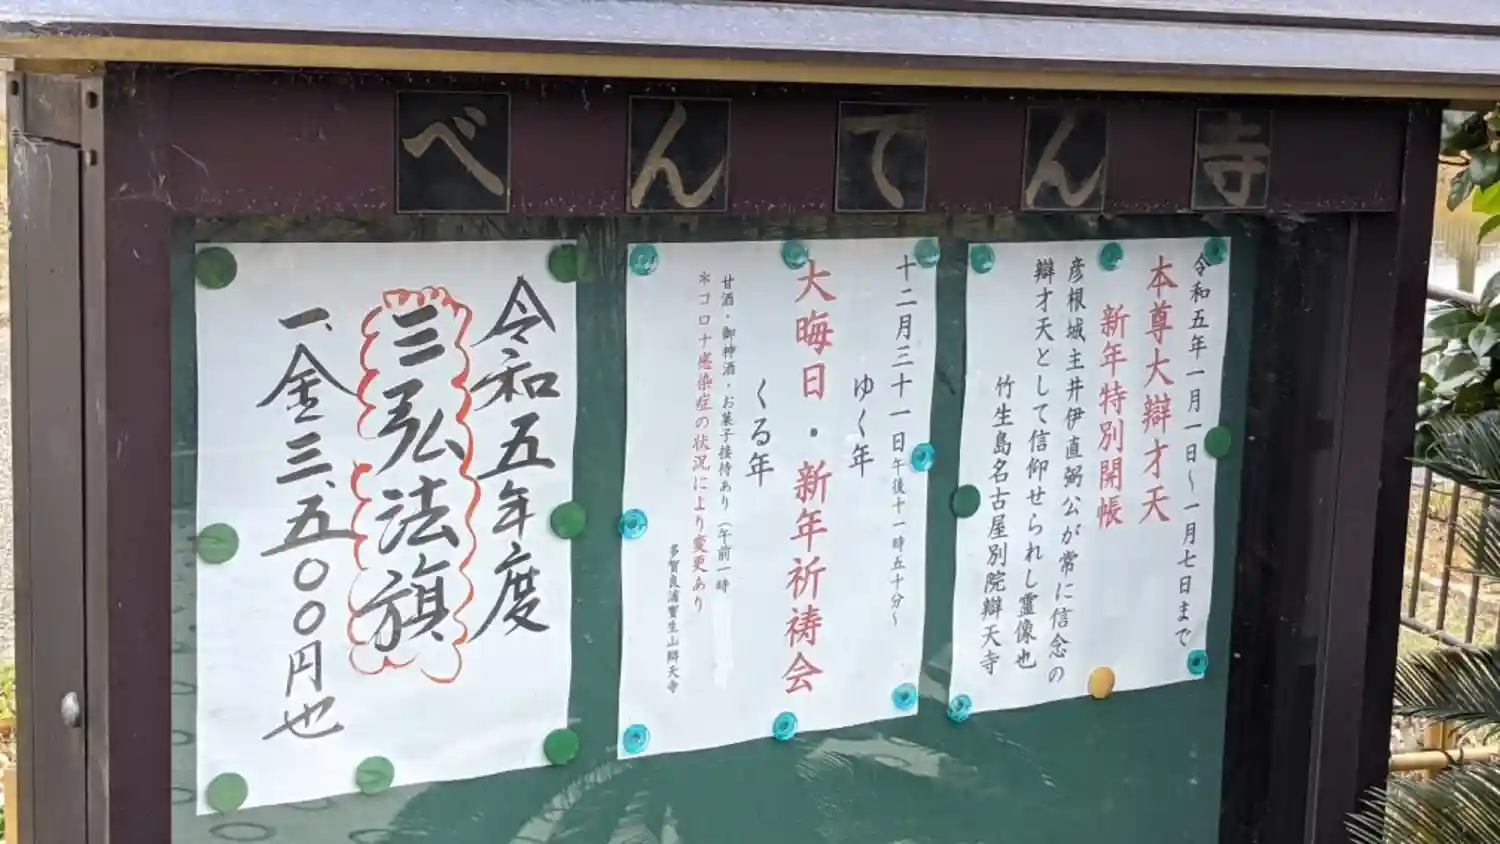 べんてん寺
令和五年一月一日〜一月七日まで
本尊大辯才天
新年特別開帳
彦根城主井伊直弼公が常に信念の
辯才天として信仰せられし靈像也
竹生島名古屋別院辯天寺
十二月三十一日午後十一時五十分〜
ゆく年
大晦日・新年祈祷会
くる年
甘酒・御神酒・お菓子接待あり(午前一時
*コロナ感染症の状況により変更あり
多賀良浦寳生山辯天寺
令和五年度
三弘法旗
一、金三、五〇〇円也